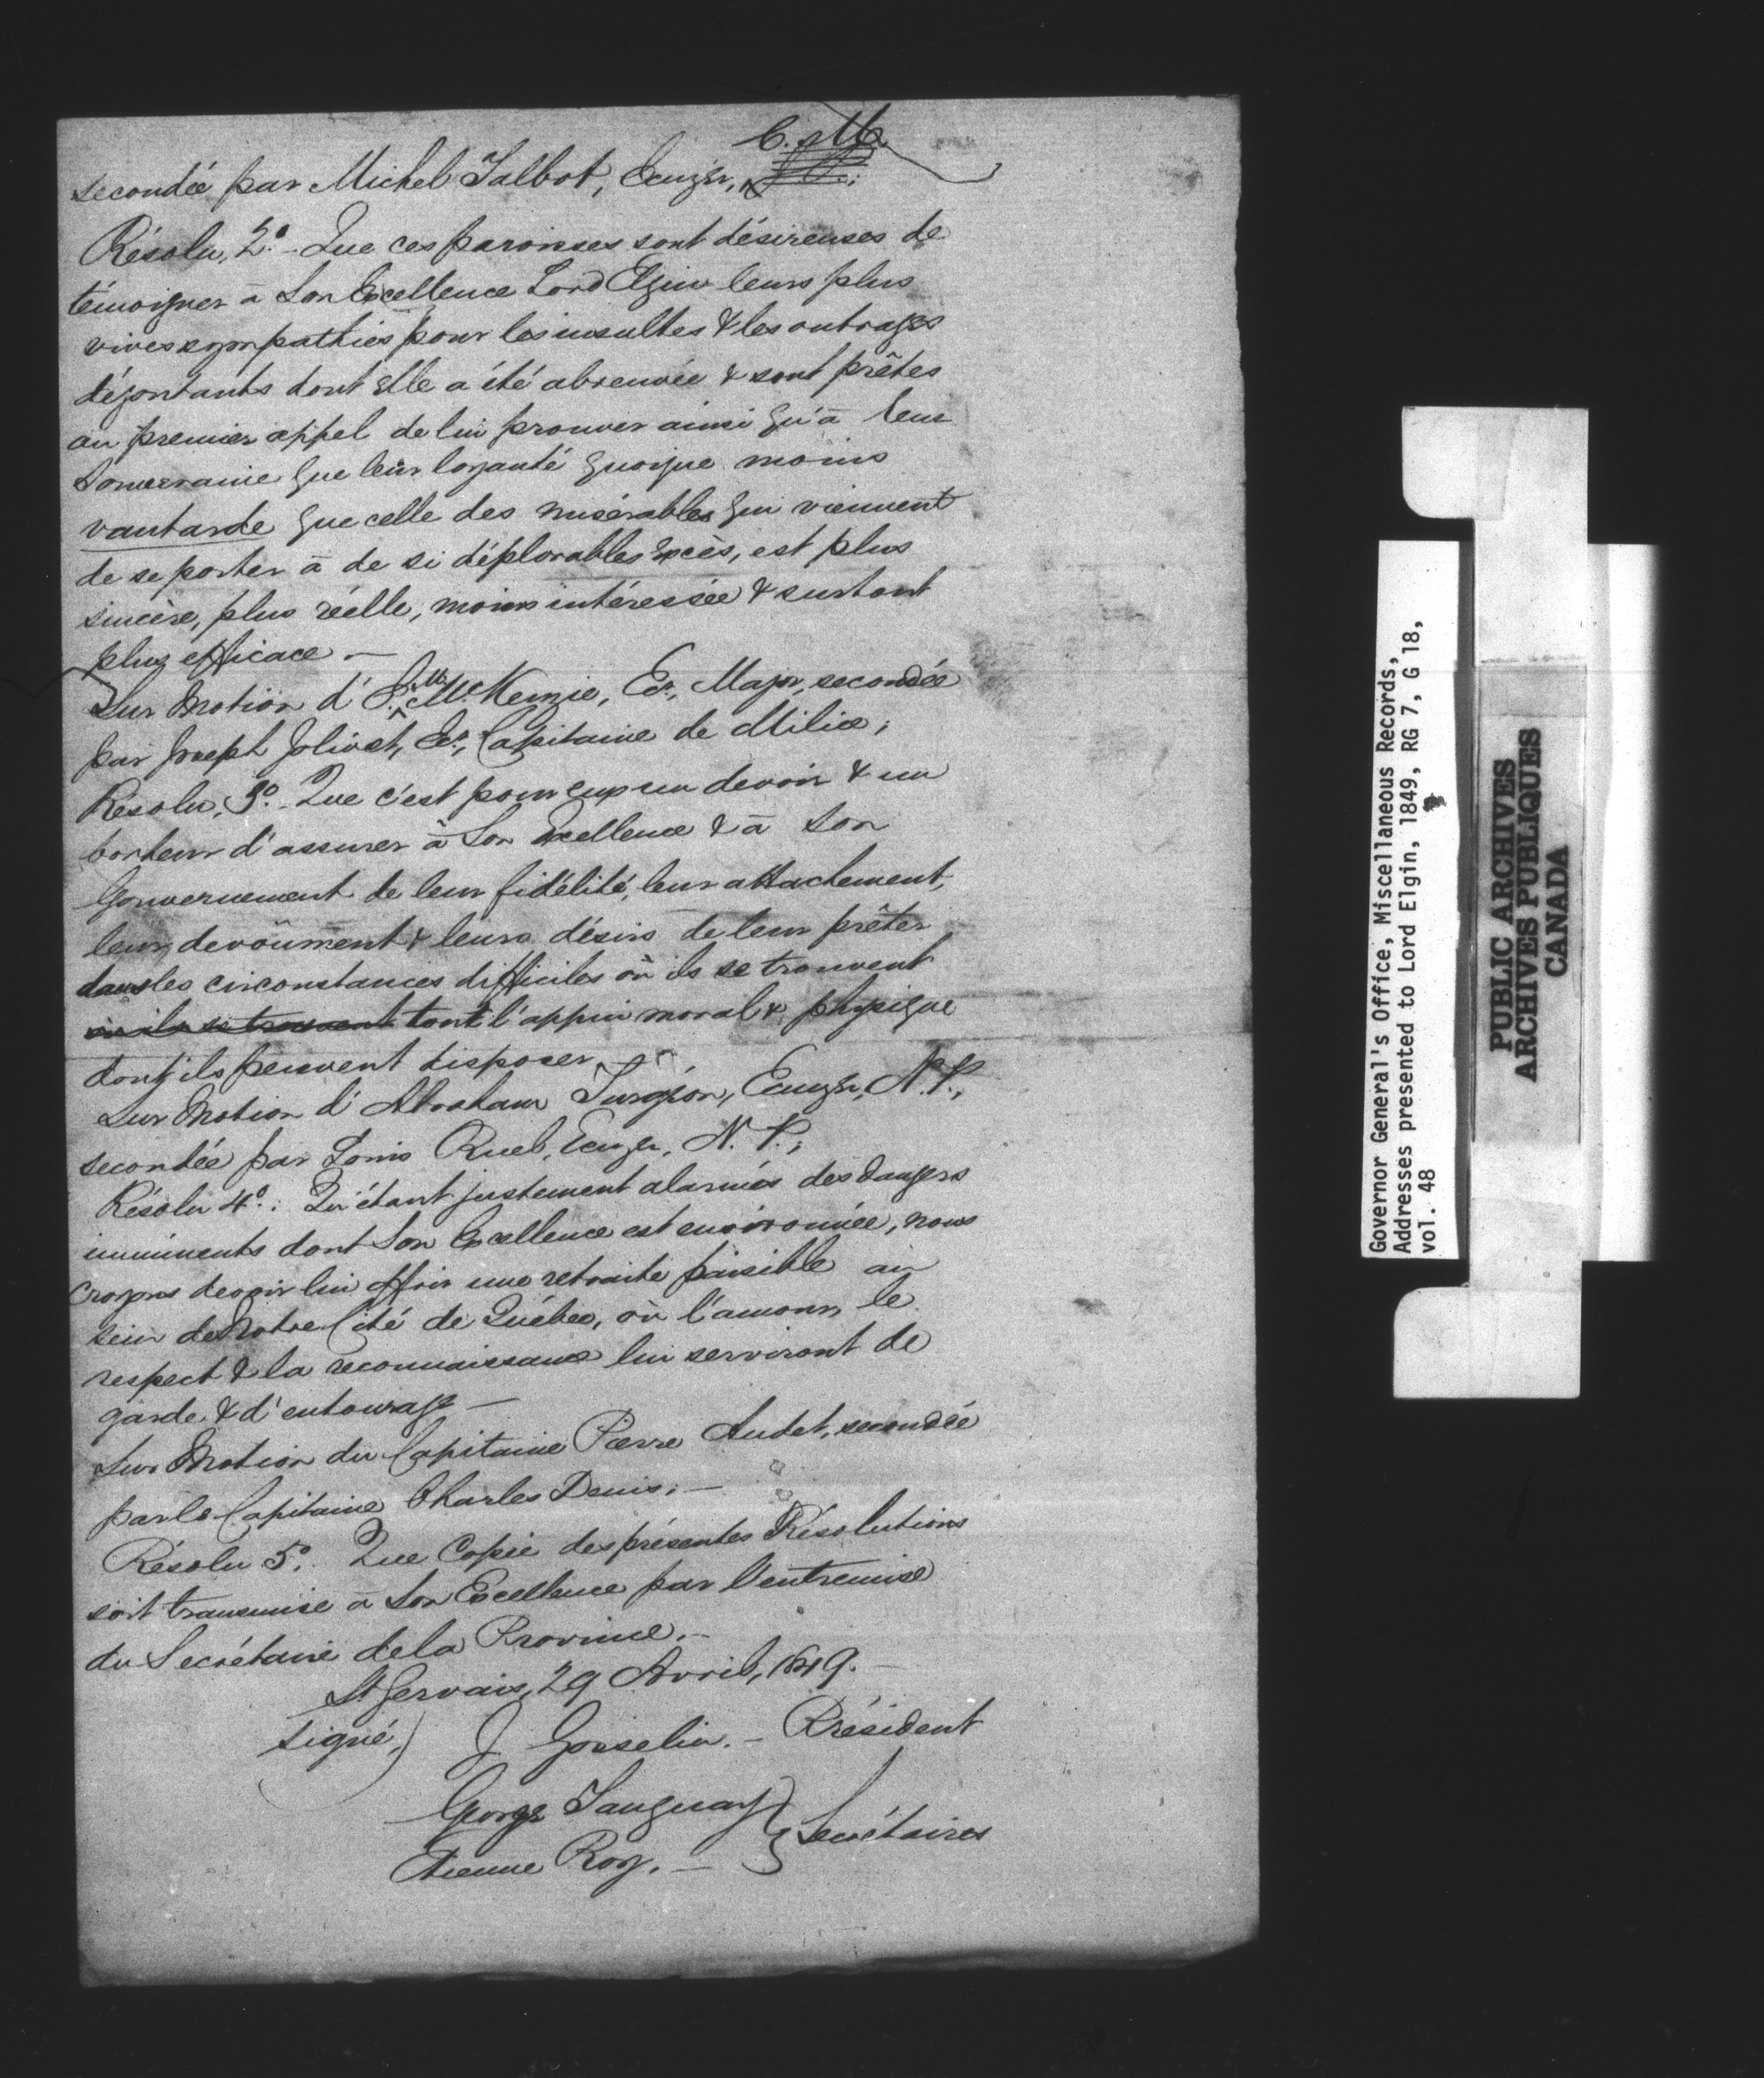 C. M.
secondée par Michel Talbot, Ecuyer,
Résolu, 2º. Que ces paroisses sont désireuses de
témoigner à Son Excellence Lord Elgin leurs plus
vives sympathies pour les insultes & les outrages
dégoutants dont Elle a été abreuvée & sont prêtes
au premier appel de lui prouver ainsi qu'à leur
Souveraine que leur loyauté quoique moins
vantarde que celle des misérables qui viennent
de se porter à de si déplorables Excès, est plus
sincère, plus réelle, moins intéressée & surtout
plus efficace. —
Sur Motion d' McKenzie, Ecr., Major, secondée
par Joseph Jolivet, Ecr., Capitaine de Milice;
Résolu, 3º. Que c'est pour eux un devoir & un
bonheur d'assurer à Son Excellence & à Son
Gouvernement de leur fidélité, leur attachement,
leur devoûment & leurs désirs de leur prêter
dans les circonstances difficiles où ils se trouvent
où ils se trouvent tout l'appui moral & physique
dont ils peuvent disposer. —
Sur Motion d'Abraham Turgéon, Ecuyer, N.P.,
secondée par Louis Ruel, Ecuyer, N.P.;
Résolu 4º: Qu'étant justement alarmés des dangers
imminents dont Son Excellence est environnée, nous
croyons devoir lui offrir une retraite paisible au
sein de Notre Cité de Québec, où l'amour, le
respect & la reconnaissance lui serviront de
garde & d'entourage —
Sur Motion du Capitaine Pierre Audet, secondée
par le Capitaine Charles Denis; —
Résolu 5º. Que Copie des présentes Résolutions
soit transmise à Son Excellence par l'entremise
du Secrétaire de la Province. —
St Gervais, 29 Avril, 1849. —
Signé,) J Gosselin. — Président
George Tanguay } Secrétaires
Etienne Roy. —
Governor General's Office, Miscellaneous Records,
Addresses presented to Lord Elgin, 1849, RG 7, G 18,
vol. 48
PUBLIC ARCHIVES
ARCHIVES PUBLIQUES
CANADA